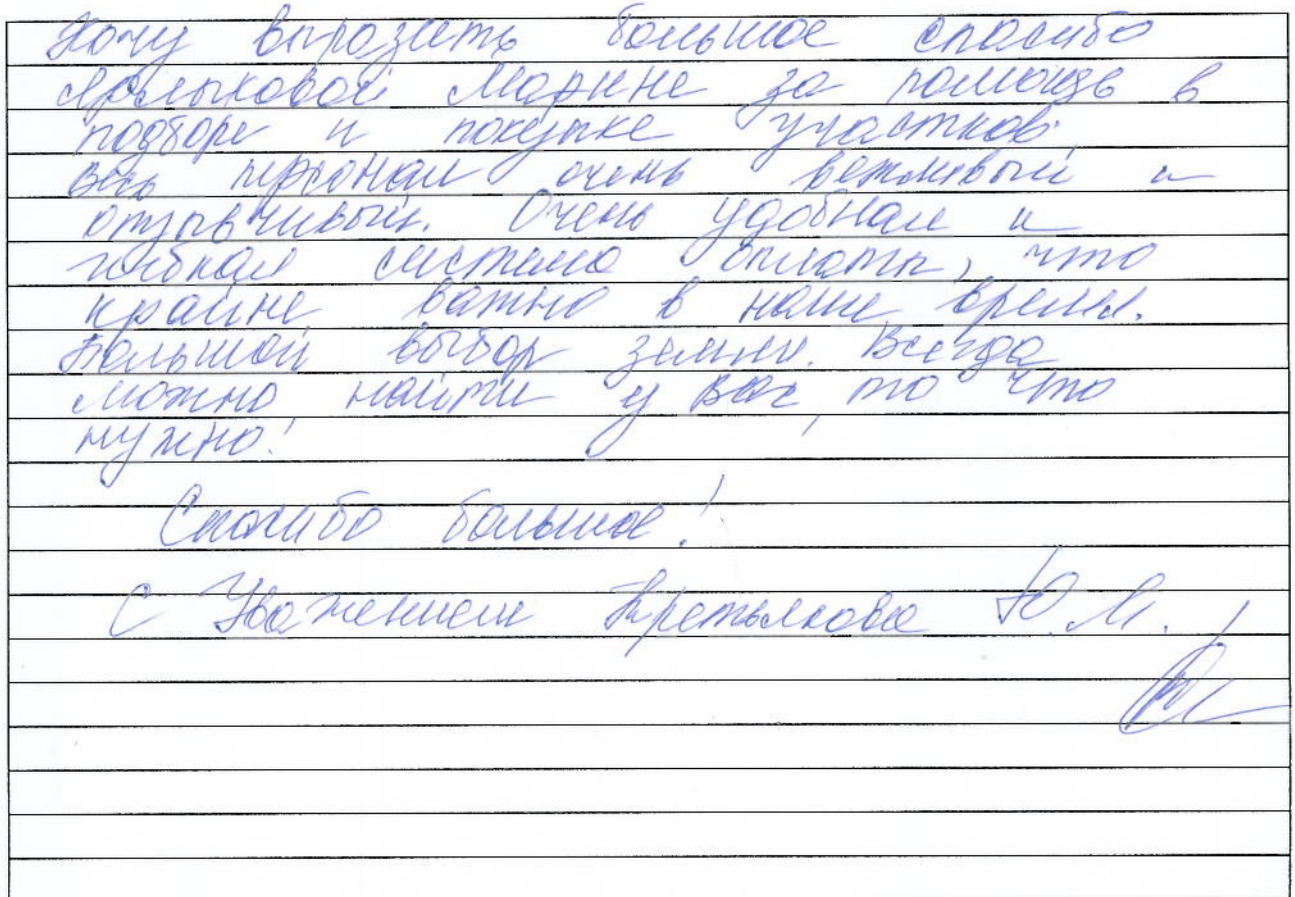 Хочу выразить большое спасибо
Ярлыковой Марине за помощь в
подборе и покупке участков.
Весь персонал очень вежливый и
отзывчивый. Очень удобная и
гибкая система оплаты, что
крайне важно в наше время.
Большой выбор земли. Всегда
можно найти у Вас, то что
нужно!
Спасибо большое!
С Уважением Третьякова Ю.М.